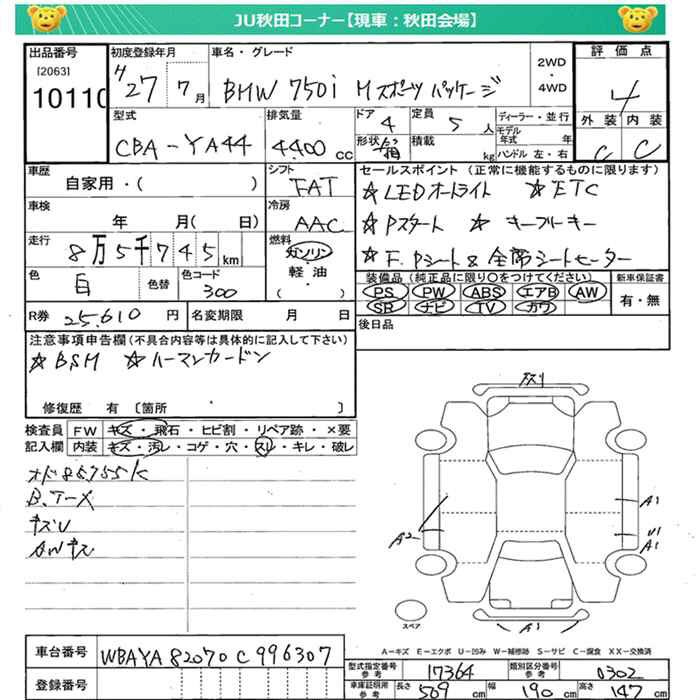 JU秋田コーナー【現車：秋田会場】
出品番号 初度登録年月 車名・グレード 2WD・4WD 評価点
[2063]
10110 H27 7月 BMW 750i Mスポーツパッケージ 4
型式 排気量 ドア 定員 ディーラー・並行 外装 内装
CBA-YA44 4.400cc 4 5人 モデル年式 年 C C
形状 箱 積載 kg ハンドル 左・右
車歴 シフト セールスポイント(正常に機能するものに限ります)
自家用・( ) FAT ☆LEDオートライト ☆ETC
車検 冷房 ☆Pスタート ☆キーフリーキー
年 月( 日) AAC ☆F.Pシート&全席シートヒーター
走行 燃料 ガソリン
8万5千745km 軽油・( )
色 白 色替 色コード 300
装備品(純正品に限り○をつけてください) 新車保証書
PS PW ABS エアB AW 有・無
SR ナビ TV カワ
R券 25.610円 名変期限 月 日 後日品
注意事項申告欄(不具合内容等は具体的に記入して下さい)
☆BSM ☆ハーマンカードン
修復歴 有 [箇所 ]
検査員記入欄 FW キズ・飛石・ヒビ割・リペア跡・×要
内装 キズ・汚レ・コゲ・穴・スレ・キレ・破レ
オド85755K
B.T-X
キズU
AWキズ
A2
A1
U1
A1
A1
スペア
A－キズ E－エクボ U－凹み W－補修跡 S－サビ C－腐食 XX－交換済
車台番号 WBAYA82070C996307
登録番号
型式指定番号参考 17364 類別区分番号参考 0302
車庫証明所参考 長さ 509cm 幅 190cm 高さ 147cm